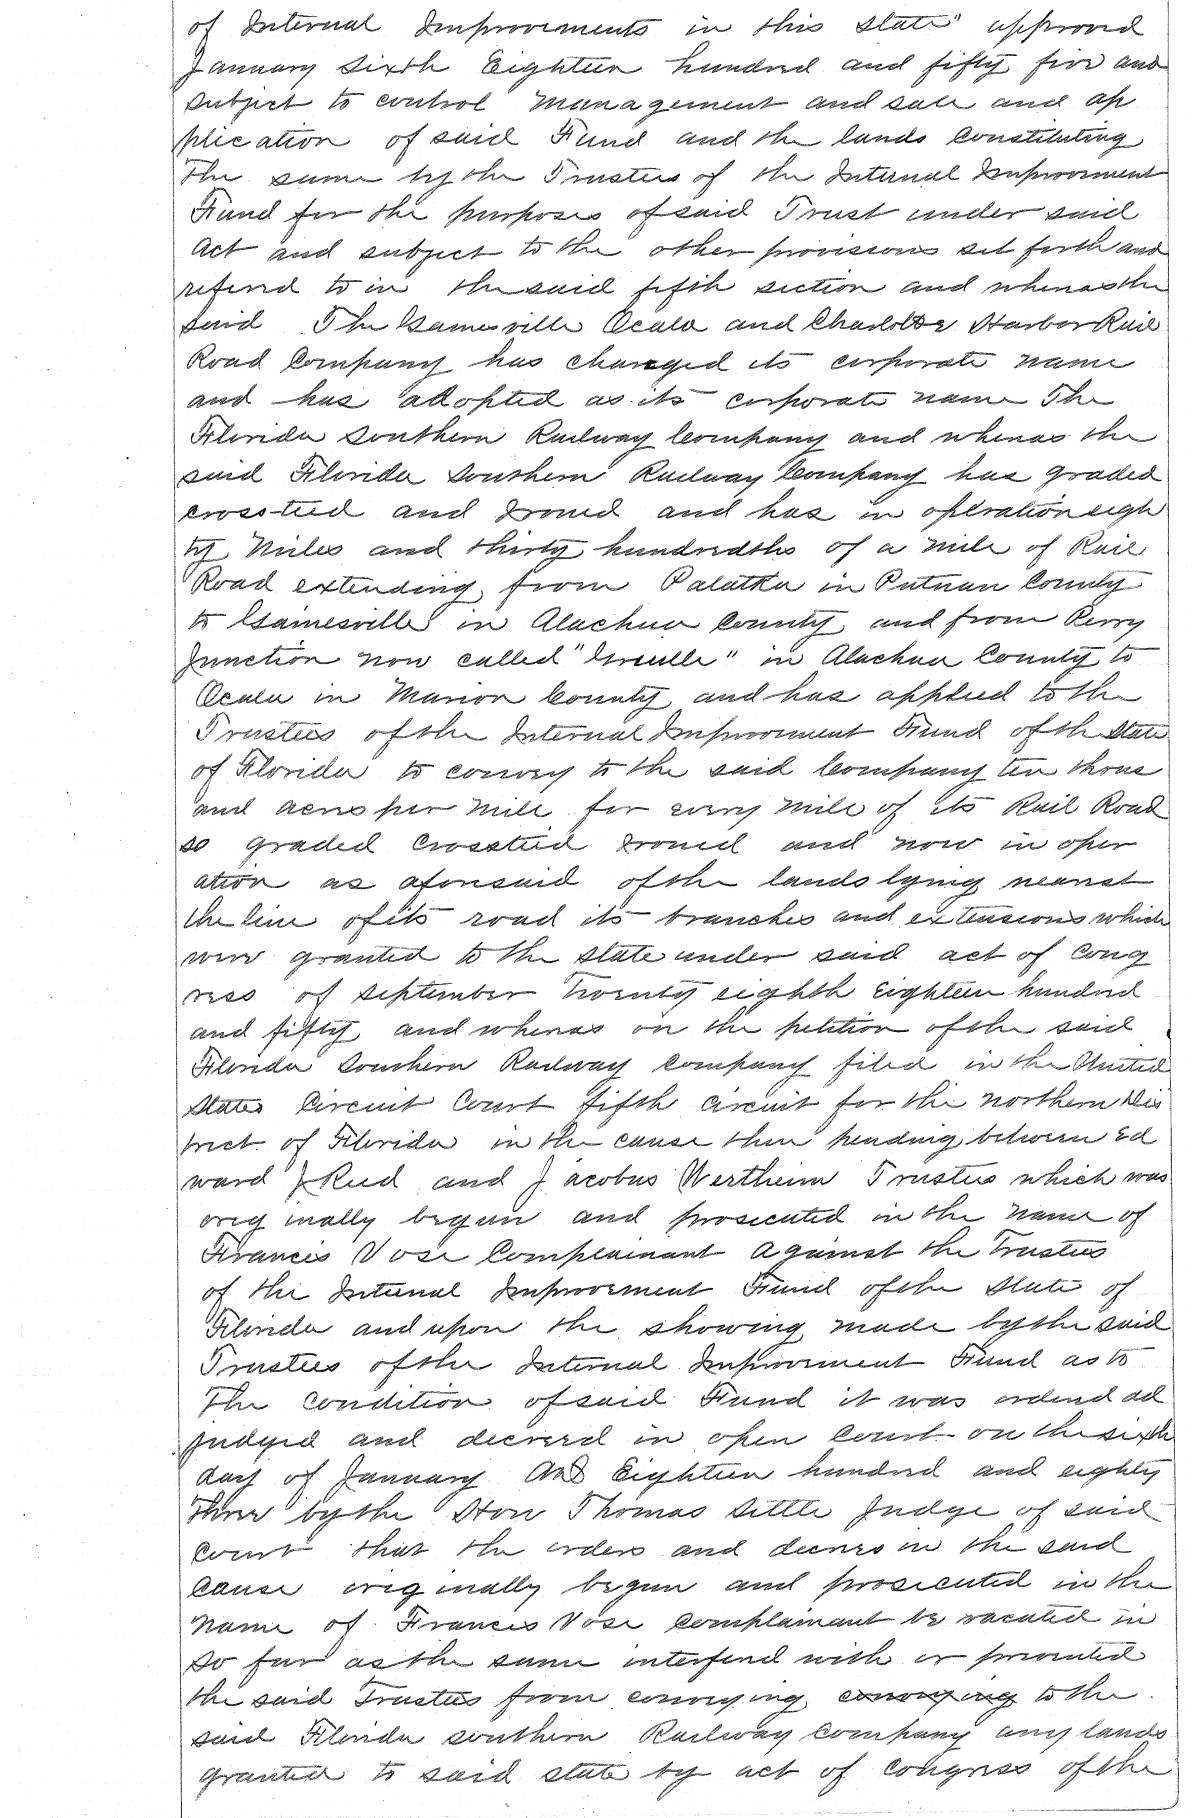 of Internal Improvements in this State" approved
January Sixth Eighteen hundred and fifty five and
Subject to control management and sale and ap
plication of said Fund and the lands Constituting
the same by the Trustees of the Internal Improvement
Fund for the purposes of said Trust under said
Act and subject to the other provisions set forth and
referred to in the said fifth section and whereas the
said The Gainesville Ocala and Charlotte Harbor Rail
Road Company has changed its corporate name
and has adopted as its corporate name The
Florida Southern Railway Company and whereas the
said Florida Southern Railway Company has graded
crosstied and Ironed and has in operation eigh
ty Miles and thirty hundredths of a mile of Rail
Road extending from Palatka in Putnan County
to Gainesville in Alachua County and from Perry
Junction now called " " in Alachua County to
Ocala in Marion County and has applied to the
Trustees of the Internal Improvement Fund of th State
of Florida to convey to the said Company ten thous
and acres per mile for every mile of its Rail Road
so graded Crosstied Ironed and now in oper
ation as aforesaid of the lands lying nearest
the line of its road its branches and extensions which
were granted to the State under said act of Cong
ress of September Twenty eighth Eighteen hundred
and fifty and whereas on the petition of the said
Florida Southern Railway Company filed in the United
States Circuit Court fifth circuit for the northern Dis
trict of Florida in the cause then pending between Ed
ward J Reed and Jacobus Wertheim Trustees which was
originally begun and prosecuted in the name of
Francis Vose Complainant against the Trustees
of the Internal Improvement Fund of the State of
Florida and upon the showing made by the said
Trustees of the Internal Improvement Fund as to
the condition of said Fund it was ordered ad
judged and decreed in open Court on the sixth
day of January AD Eighteen hundred and eighty
three by the Hon Thomas Settle Judge of said
Court that the orders and decrees in the said
Cause originally begun and prosecuted in the
name of Francis Vose complainant be vacated in
so far as the same interfered with or prevented
the said Trustees from conveying conveying to the
said Florida Southern Railway Company any lands
granted to said state by act of Congress of the